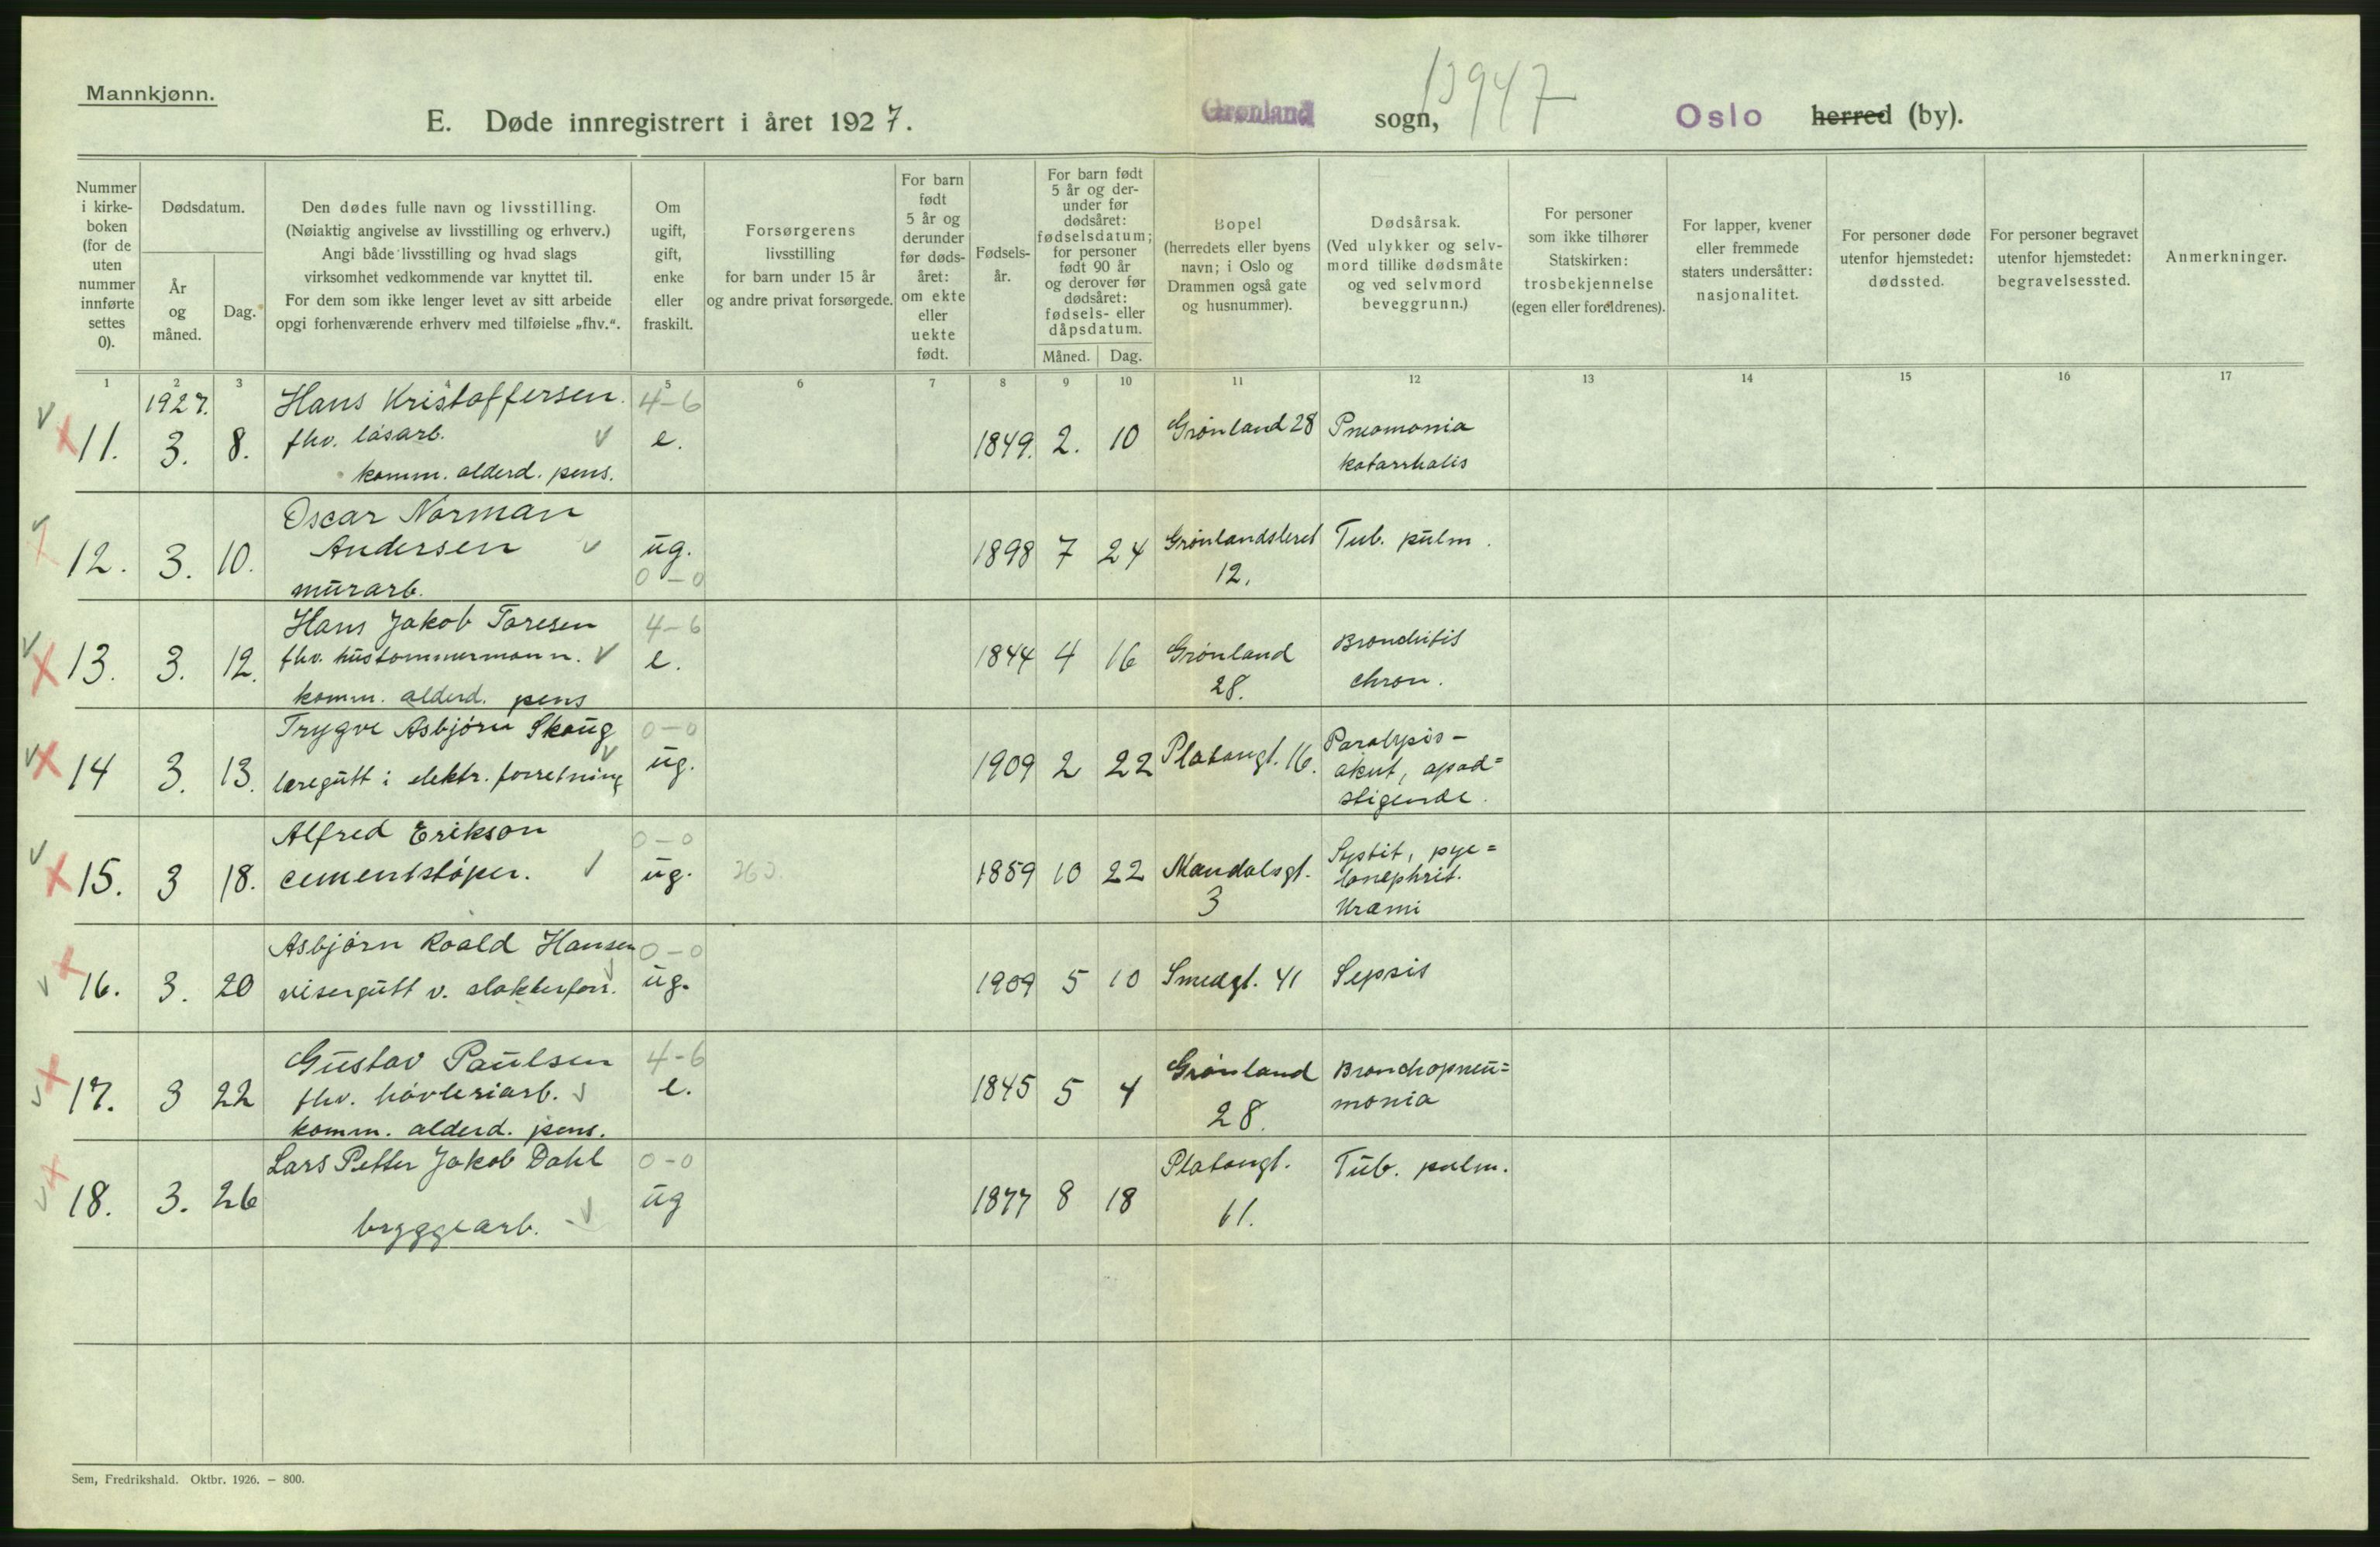 Mannkjønn.
E. Døde innregistrert i året 1927.
Grønland sogn, Oslo herred (by).
Nummer i kirkeboken (for de uten nummer innførte settes 0).
Dødsdatum.
År og måned.
Dag.
Den dødes fulle navn og livsstilling.
(Nøiaktig angivelse av livsstilling og erhverv.)
Angi både livsstilling og hvad slags
virksomhet vedkommende var knyttet til.
For dem som ikke lenger levet av sitt arbeide
opgi forhenværende erhverv med tilføielse „fhv.“.
Om ugift, gift, enke eller fraskilt.
Forsørgerens
livsstilling
for barn under 15 år
og andre privat forsørgede.
For barn født 5 år og derunder før dødsåret: om ekte eller uekte født.
Fødselsår.
For barn født 5 år og derunder før dødsåret: fødselsdatum; for personer født 90 år og derover før dødsåret: fødsels- eller dåpsdatum.
Måned. Dag.
Bopel
(herredets eller byens
navn; i Oslo og
Drammen også gate
og husnummer).
Dødsårsak.
(Ved ulykker og selv-
mord tillike dødsmåte
og ved selvmord
beveggrunn.)
For personer
som ikke tilhører
Statskirken:
trosbekjennelse
(egen eller foreldrenes).
For lapper, kvener
eller fremmede
staters undersåtter:
nasjonalitet.
For personer døde
utenfor hjemstedet:
dødssted.
For personer begravet
utenfor hjemstedet:
begravelsessted.
Anmerkninger.
1 2 3 4 5 6 7 8 9 10 11 12 13 14 15 16 17
1927. Hans Kristoffersen. 4-6
11. 3. 8. fhv. låsarb. e. 1849. 2. 10 Grønland 28 Pneomonia
komm. alderd. pens. katarrhalis
Oscar Norman
12. 3. 10. Andersen ug. 1898 7 24 Grønlandsleret Tub. pulm.
murarb. 0-0 12.
Hans Jakob Toresen 4-6
13. 3. 12. fhv. hustømmermann. e. 1844 4 16 Grønland Bronchitis
komm. alderd. pens 28. chron.
Trygve Asbjørn Skaug 0-0
14 3. 13. læregutt i elektr. forretning ug. 1909 2 22 Platougt. 16. Paralysis-
akut, opad=
stigende.
Alfred Erikson 0-0
15. 3 18. cementstøper. ug. 1859 10 22 Mandalsgt. 3
pye=
lonephrit.
Urämi
Asbjørn Roald Hansen 0-0
16. 3. 20 visergutt v. slakterforr. ug. 1909 5 10 Smedgt. 41 Sepsis
Gustav Paulsen 4-6
17. 3 22 fhv. høvleriarb. e. 1845 5 4 Grønland Bronchopneu=
komm. alderd. pens. 28. monia
Lars Petter Jakob Dahl 0-0
18. 3. 26 bryggearb. ug 1877 8 18 Platougt. Tub. pulm.
11.
Sem, Fredrikshald. Oktbr. 1926. — 800.